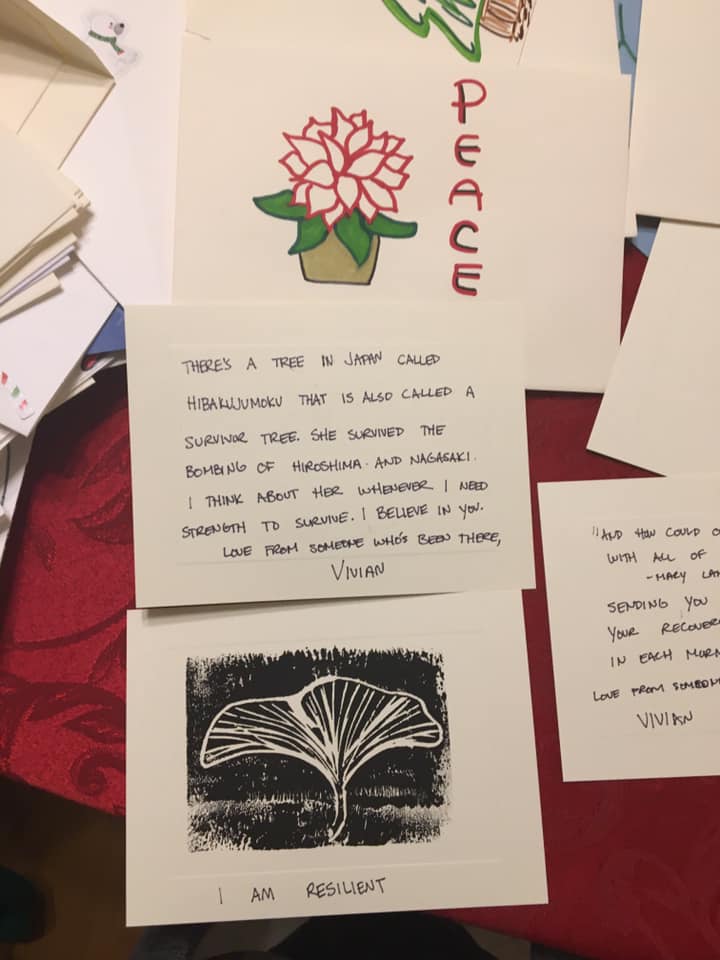 PEACE
THERE'S A TREE IN JAPAN CALLED
HIBAKUJUMOKU THAT IS ALSO CALLED A
SURVIVOR TREE. SHE SURVIVED THE
BOMBING OF HIROSHIMA. AND NAGASAKI.
I THINK ABOUT HER WHENEVER I NEED
STRENGTH TO SURVIVE. I BELIEVE IN YOU.
LOVE FROM SOMEONE WHO'S BEEN THERE,
VIVIAN
"AND HOW COULD
WITH ALL OF
-MARY
SENDING YOU
YOUR
IN EACH
LOVE FROM
VIVIAN
I AM RESILIENT